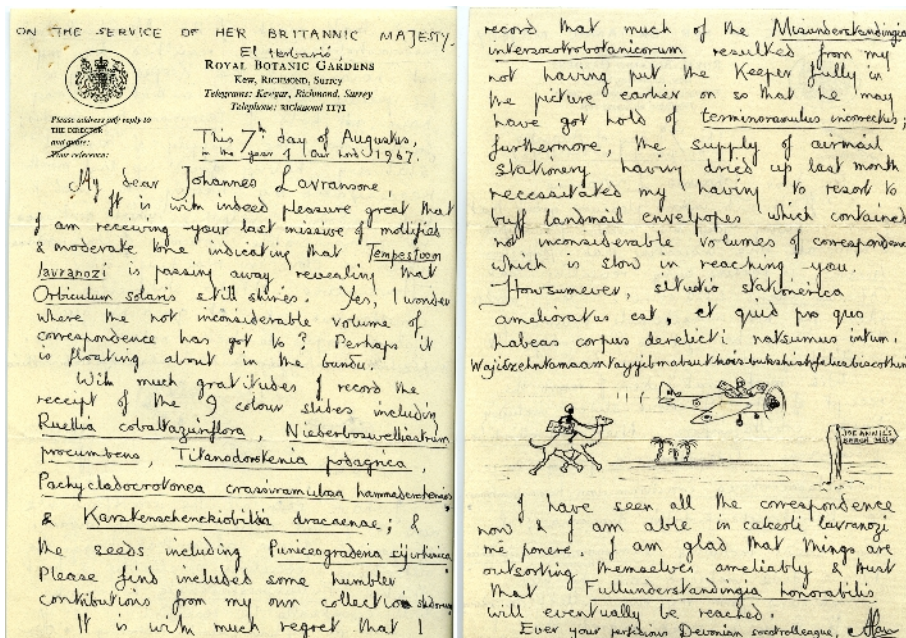 ON THE SERVICE OF HER BRITANNIC MAJESTY.
El Herbario
ROYAL BOTANIC GARDENS
Kew, RICHMOND, Surrey
Telegrams: Kewgar, Richmond, Surrey
Telephone: RICHMOND 1171
Please address any reply to
THE DIRECTOR
and quote:
Your reference:
This 7th day of Augustus,
in the year of Our Lord 1967.
My dear Johannes Lavransone,
It is with indeed pleasure great that
I am receiving your last missive of mollified
& moderate tone indicating that Tempestoon
lavranozi is passing away revealing that
Orbiculum solaris still shines. Yes, I wonder
where the not inconsiderable volume of
correspondence has got to? Perhaps it
is floating about in the bundu.
With much gratitudes I record the
receipt of the 9 colour slides including
Ruellia cobaltazuriflora, Nieberboswelliastrum
procumbens, Titanodorstenia podagrica,
Pachycladocrotonea crassiramulosa
& Karstenschenckiobilia dracaenae; &
the seeds including Puniceogradenia
Please find included some humbler
contributions from my own collection
It is with much regret that I
record that much of the Misunderstandingia
intersocotrobotanicorum resulted from my
not having put the Keeper fully in
the picture earlier on so that he may
have got hold of terminoranulus incorrectus;
furthermore, the supply of airmail
stationery having dried up last month
necessitated my having to resort to
buff landmail envelpopes which contained
not inconsiderable volumes of correspondence
which is slow in reaching you.
Howsumever, situatio stationerica
amelioratus est, et quid pro quo
habeas corpus derelicti natsumus intum.
JOE ANNIE'S
I have seen all the correspondence
now & I am able in calceoli lavranozi
me ponere. I am glad that things are
outsorting themselves ameliably & trust
that Fullunderstandingia honorabilis
will eventually be reached.
Ever your Devonian